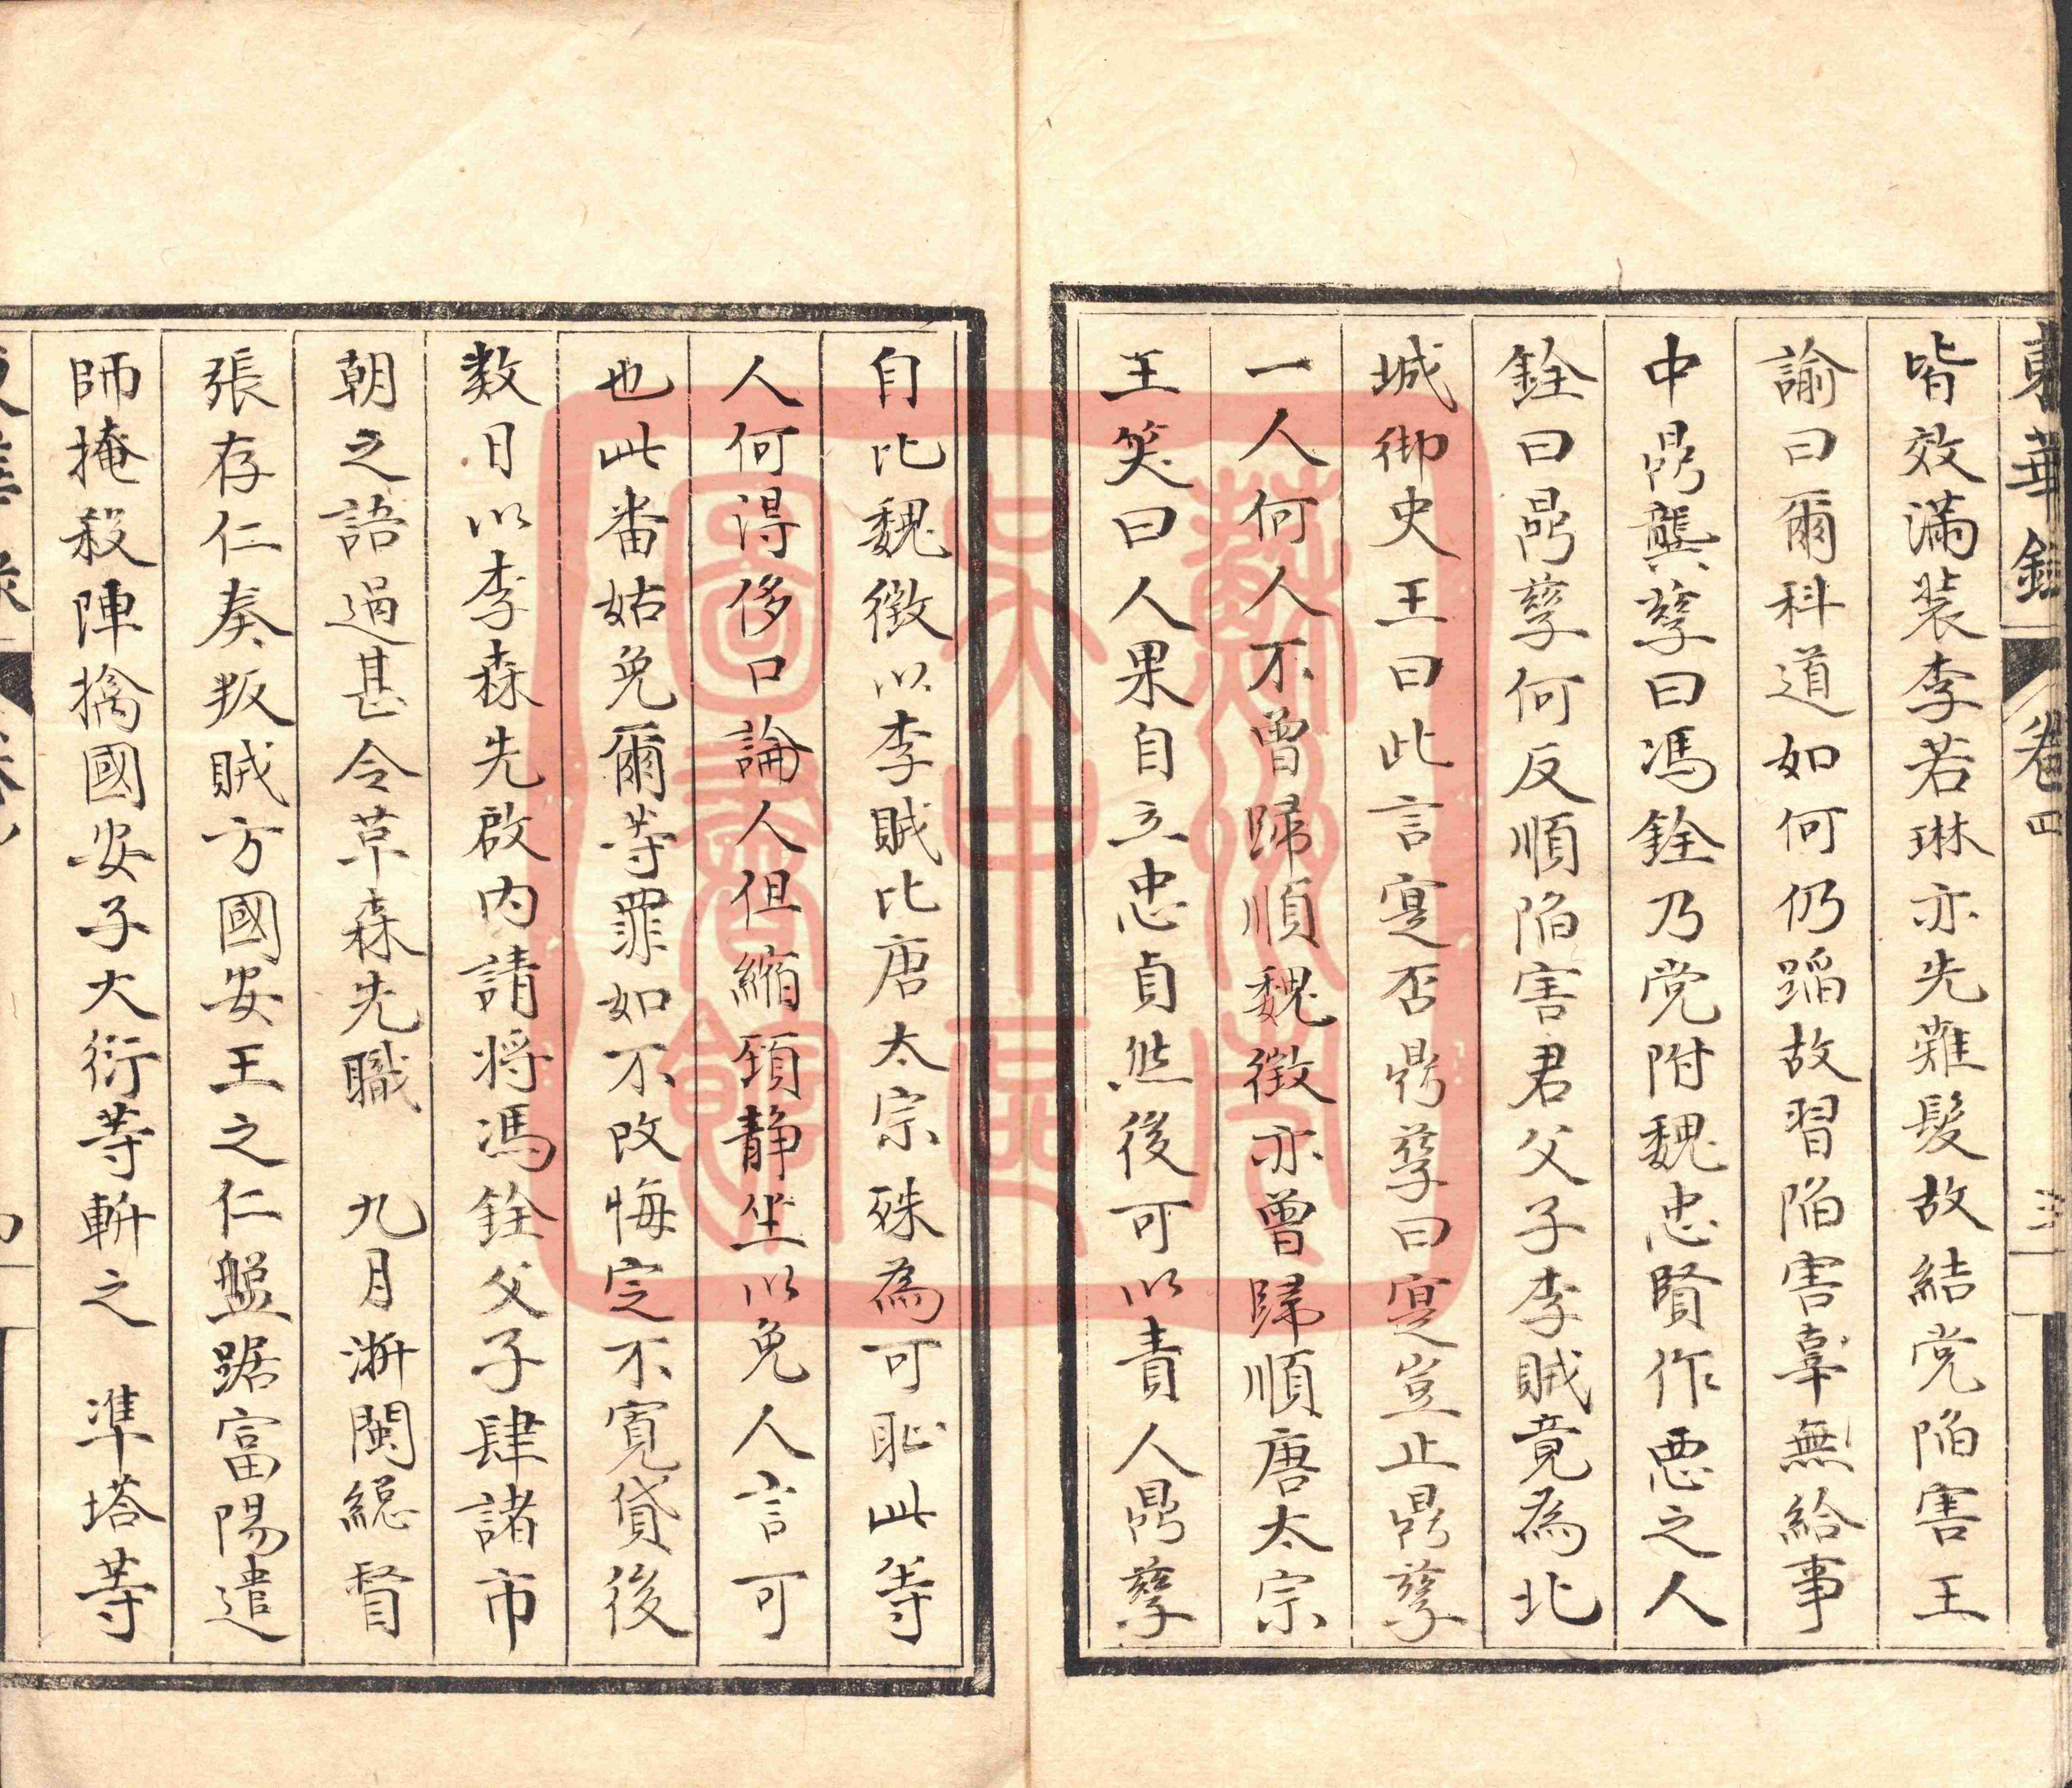 東華錄 卷四 三
皆效滿裝李若琳亦先薙髮故結党陷害王
諭曰爾科道如何仍蹈故習陷害辜無給事
中鼎龔孳曰馮銓乃党附魏忠賢作惡之人
銓曰鼎孳何反順陷害君父子李賊竟為北
城御史王曰此言寔否鼎孳曰寔豈止鼎孳
一人何人不曾歸順魏徵亦曾歸順唐太宗
王笑曰人果自立忠貞然後可以責人鼎孳
自比魏徵以李賊比唐太宗殊為可恥此等
人何得侈口論人但縮頸静坐以免人言可
也此番姑免爾等罪如不改悔定不寬貸後
数日以李森先啟内請将馮銓父子肆諸市
朝之語過甚令革森先職　九月浙閩緫督
張存仁奏叛賊方國安王之仁盤踞富陽遣
師掩殺陣擒國安子大衍等斬之　準塔等
蘇州市
吳中區
圖書館